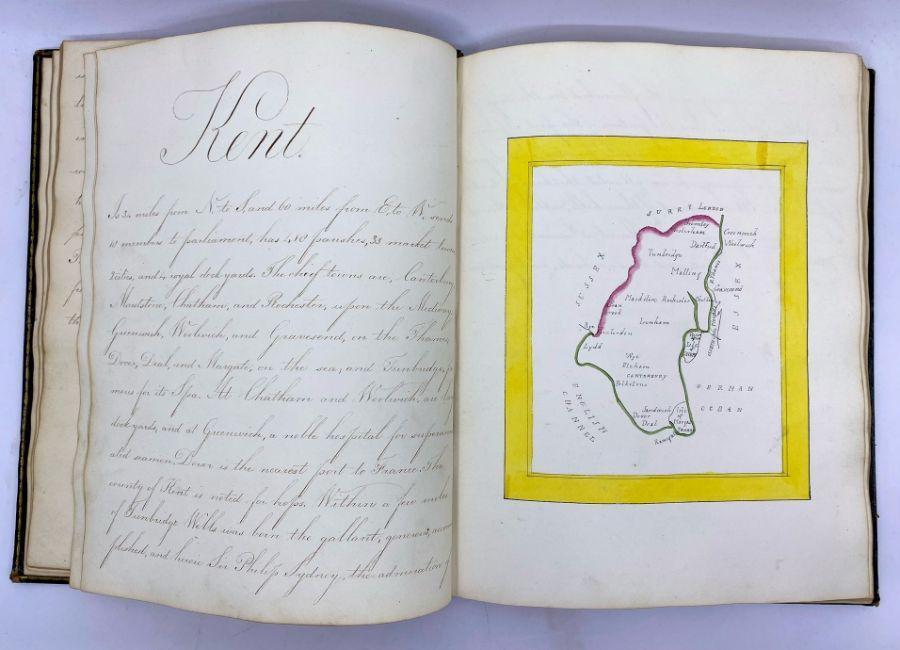 Kent.
Is 24 miles from N. to S. and 60 miles from E. to W. sends
10 members to parliament, has 410 parishes, 33 market towns,
2 cities, and 4 royal dock yards. The chief towns are, Canterbury,
Maidstone, Chatham, and Rochester, upon the Medway,
Greenwich, Woolwich, and Gravesend, on the Thames,
Dover, Deal, and Margate, on the sea, and Tunbridge, fa
mous for its Spa. At Chatham and Woolwich, are
dock yards, and at Greenwich, a noble hospital for superann
ated seamen. Dover is the nearest port to France. The
county of Kent is noted for hops. Within a few miles
of Tunbridge Wells was born the gallant, generous, accom
plished, and heroic Sir Philip Sydney, the admiration of
SURRY LONDON
Bromley
Greenwich
Woolwich
Dartford
Tunbridge
Malling
SUSSEX
ESSEX
Gravesend
Rochester
Lenham
Lydd
Rye
Eleham
CANTERBURY
Folkstone
GERMAN
OCEAN
ENGLISH
CHANNEL
Sandwich
Dover
Deal
Isle
of